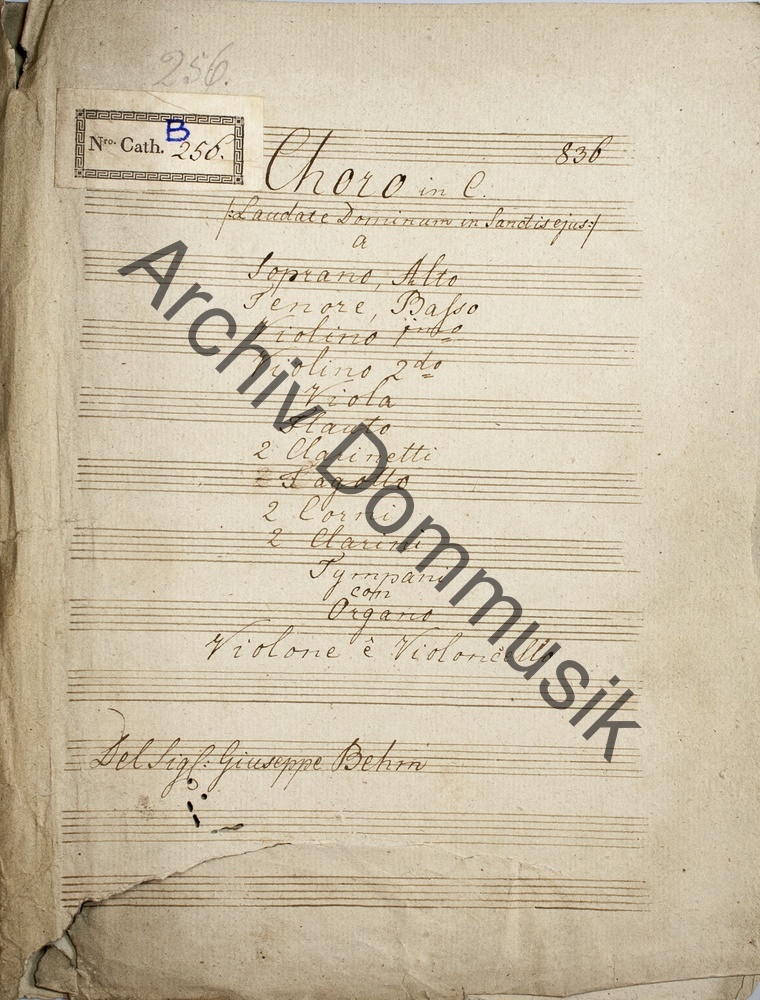 256.
Nro. Cath. B 256.
836
Choro in C.
/:Laudate Dominum in Sanctis ejus:/
a
Soprano, Alto
Tenore, Basso
Violino 1mo
Violino 2do
Viola
Flauto
2 Clarinetti
2 Fagotto
2 Corni
2 Clarini
Tympani
con
Organo
Violone è Violoncello
Del Sigl: Giuseppe Behm
Archiv Dommusik